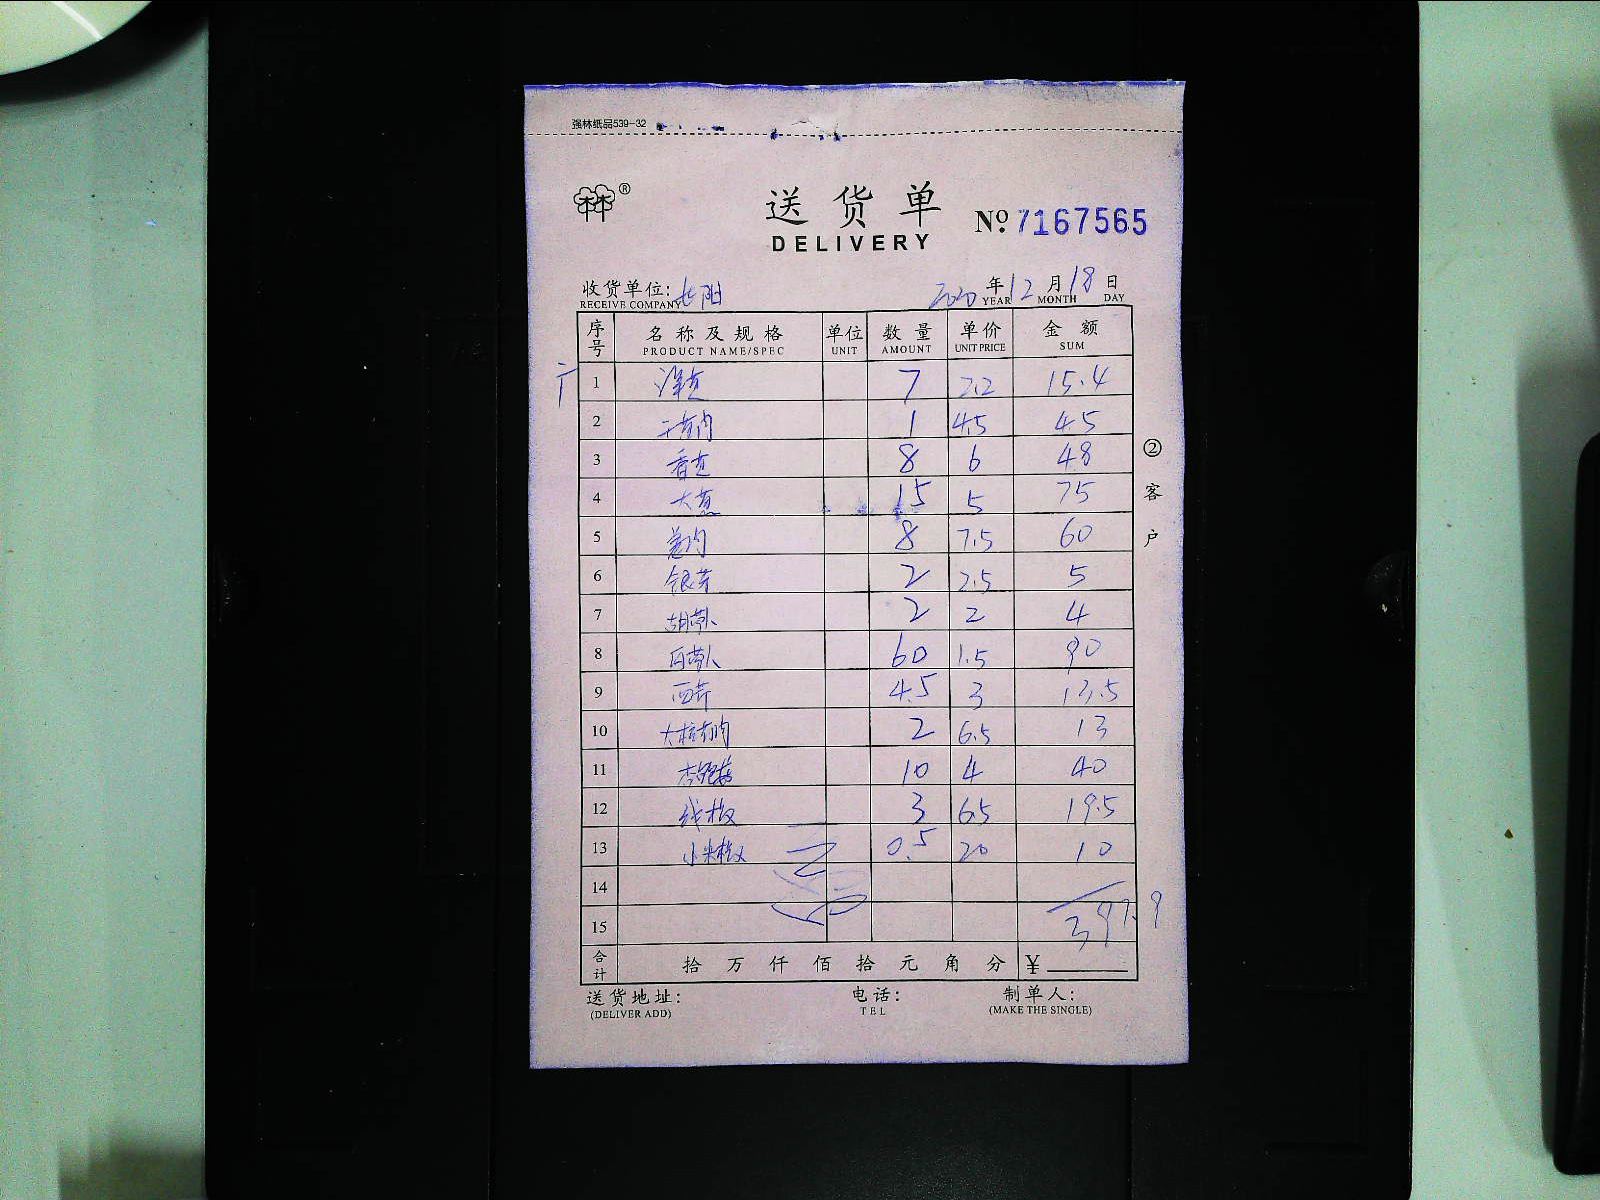 强林纸品539-32
林林®
送货单
DELIVERY
Nº 7167565
收货单位: 长阳 2020 年 12 月 18 日
RECEIVE COMPANY YEAR MONTH DAY
序号 名称及规格 单位 数量 单价 金额
PRODUCT NAME/SPEC UNIT AMOUNT UNIT PRICE SUM
1 洋芋 7 2.2 15.4
2 1 4.5 4.5
3 香芹 8 6 48
4 大葱 15 5 75
5 8 7.5 60
6 银芽 2 2.5 5
7 胡萝卜 2 2 4
8 白萝卜 60 1.5 90
9 西芹 4.5 3 13.5
10 2 6.5 13
11 杏鲍菇 10 4 40
12 线椒 3 6.5 19.5
13 小米椒 0.5 20 10
14
15 397.9
合计 拾 万 仟 佰 拾 元 角 分 ¥
送货地址: 电话: 制单人:
(DELIVER ADD) TEL (MAKE THE SINGLE)
②客户